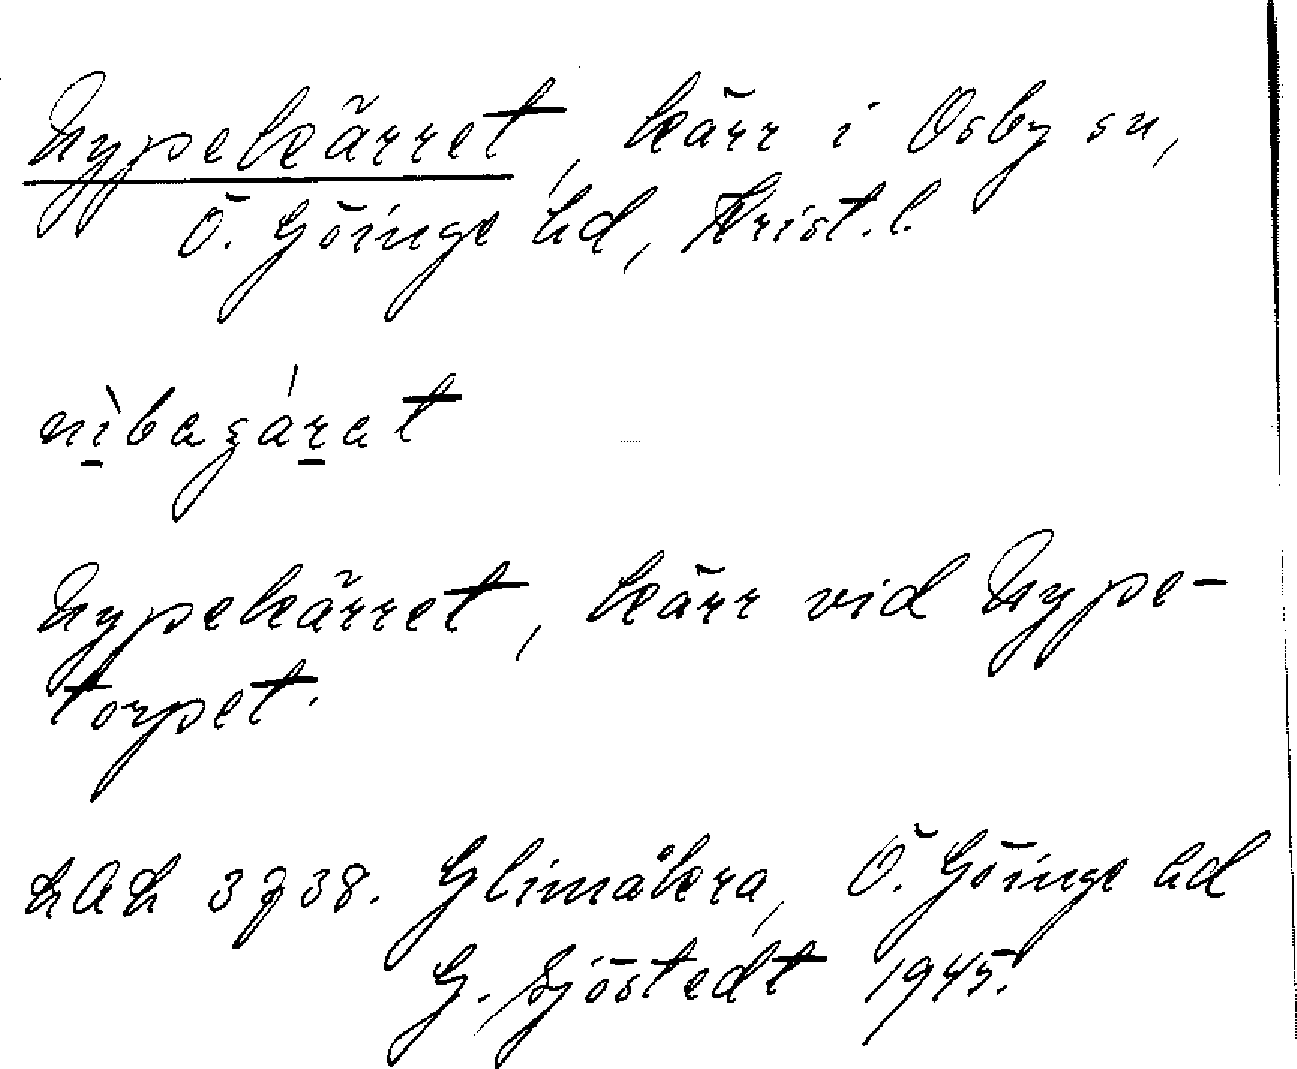 Nypekärret, kärr i Osby sn,
Ö. Göinge hd, Krist. l.
Nypekärret, kärr vid Nype-
torpet.
LAL 3738. Glimåkra, Ö. Göinge hd
G. Sjöstedt 1945.